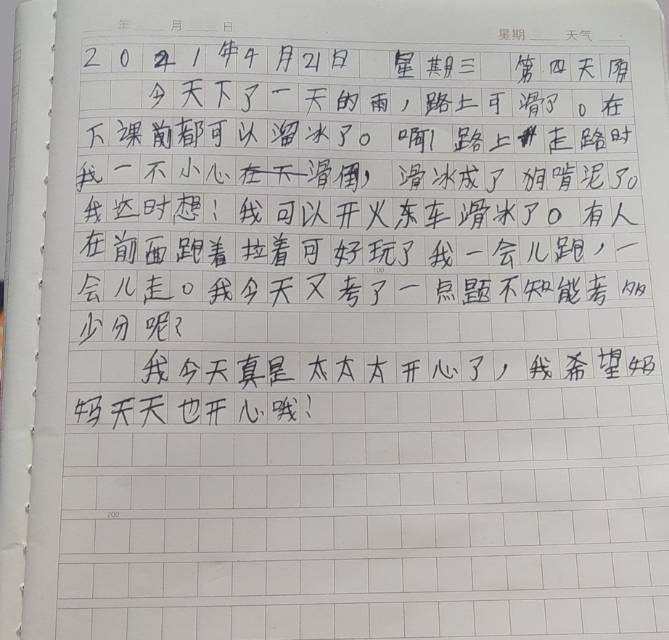 年 月 日 星期 天气
2021年4月21日 星期三 第四天 阴
今天下了一天的雨，路上可滑了。在
下课前都可以溜冰了。啊！路上走路时
我一不小心在下滑倒，滑冰成了狗啃泥了。
我这时想！我可以开火东车滑冰了。有人
在前面跑着拉着可好玩了我一会儿跑，一
会儿走。我今天又考了一点题不知能考多
少分呢？
我今天真是太太太开心了，我希望妈
妈天天也开心哦！
100
200